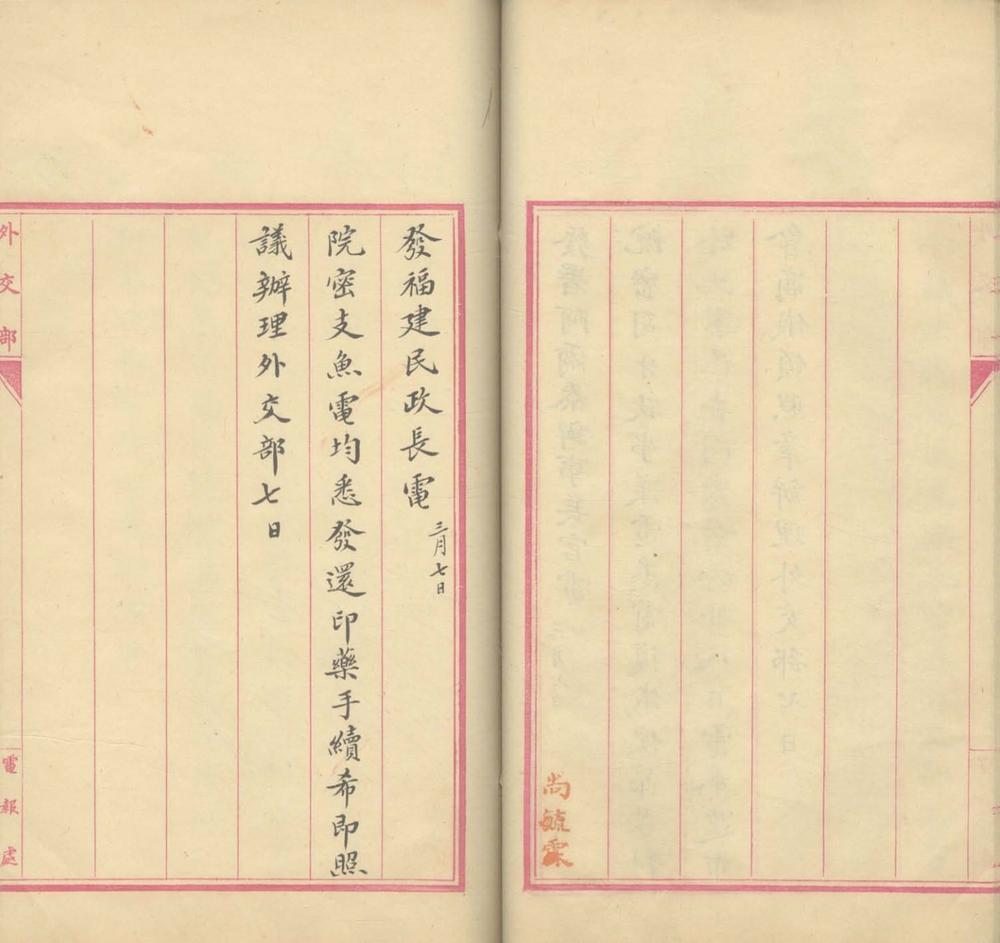 尚毓霖
發福建民政長電 三月七日
院密支魚電均悉發還印藥手續希即照
議辦理外交部七日
外交部
電報處